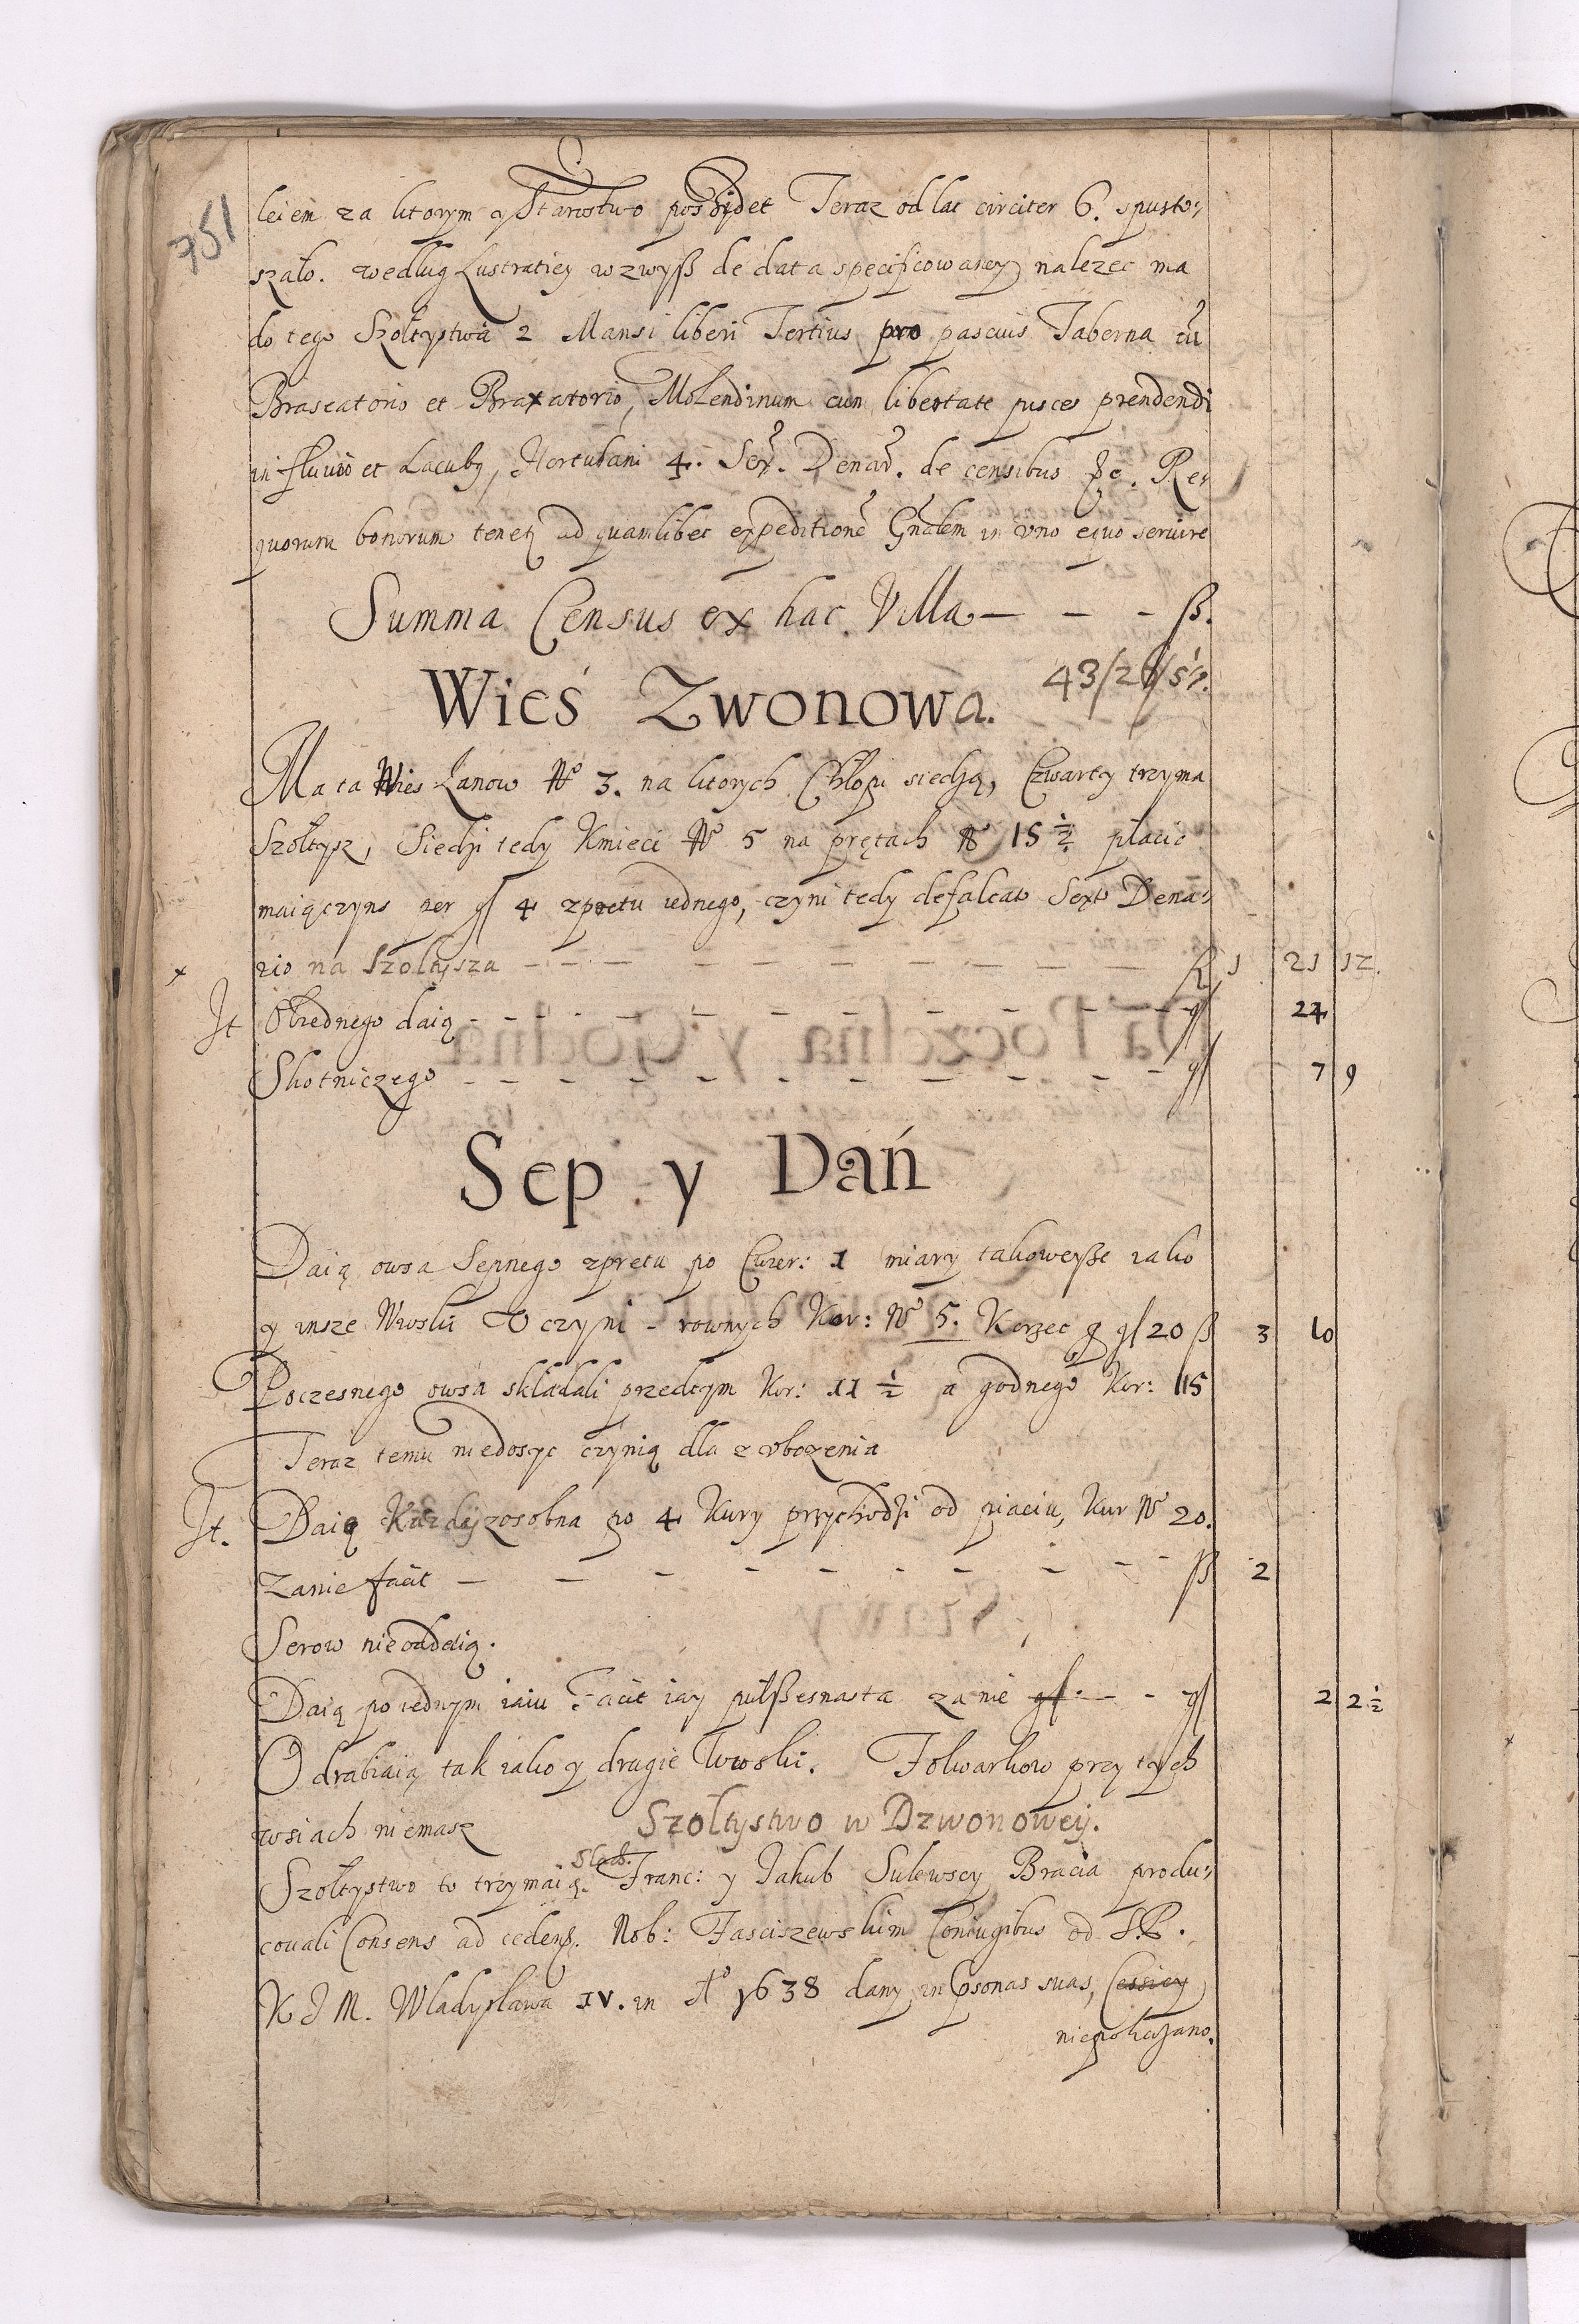 751
leiem za ktorym y Starostwo possidet Teraz od lat circiter 6. spusto:
szało. według Lustratiey wzwyß de data specificowaney nalezec ma
do tego Szołtystwa 2 Mansi liberi Tertius pro pascuis Taberna cū
Braseatorio et Braxatorio, Molendinum cum libertate pisces prendendi
in fluvio et Lacubꝫ, Hortulani 4. Sex. Denar. de censibus &c. Re:
quorum bonorum tenetꝫ ad quamlibet expeditionē Gnālem in uno equo servire
Summa Census ex hac Villa — — — ß.
43/2
Wieś Zwonowa.
Ma ta Wies Łanow No 3. na ktorych Chłopi siedzą, Czwarty trzyma
Szołtysz, Siedzi tedy Kmieci No 5 na prętach No 15 ½ płacic
maią czyns per gl 4 z prętu iednego, czyni tedy defalcato Sexto Dena:
rio na Szołtysza — — — — — — — — — — ß 1 21 12.
It Obrednego daią — — — — — — — — — — gl 24
Skotniczego — — — — — — — — — — gl 7 9
Sep y Dań
Daią owsa Sepnego z prętu po Cwier: 1 miary takoweyße iako
y insze Wioski czyni rownych Kor: No 5. Korzec gl 20 ß 3 10
Poczesnego owsa składali przedtym Kor: 11 ½ a godnego Kor: 15
Teraz temu niedosyc czynią dla zubozenia
It. Daią Kazdy zosobna po 4 Kury przychodzi od piaciu, Kur No 20.
Zanie facit — — — — — — — — — ß 2
Serow nieoddaią.
Daią po iednym iaiu Facit iay pułßesnasta zanie — — gl 2 2½
Odrabiaią tak iako y drugie Wioski. Folwarkow przy tych
wsiach niemasz
Szołtystwo w Dzwonowey.
Szołtystwo to trzymaią Franc: y Jakub Sulewscy Bracia produ:
covali Consens ad cedend. Nob: Fasciszewskim Coniugibus od S.P.
K J M. Wladysława IV. in Ao 1638 dany in psonas suas, Cessiey
niepokazano.